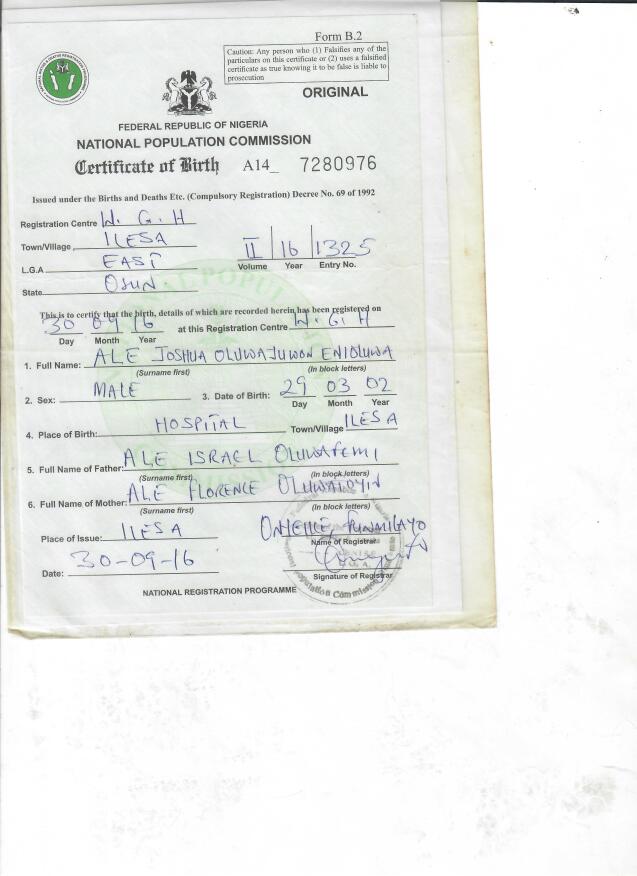 Form B.2
Caution: Any person who (1) Falsifies any of the
particulars on this certificate or (2) uses a falsified
certificate as true knowing it to be false is liable to
prosecution
ORIGINAL
FEDERAL REPUBLIC OF NIGERIA
NATIONAL POPULATION COMMISSION
Certificate of Birth A14_ 7280976
Issued under the Births and Deaths Etc. (Compulsory Registration) Decree No. 69 of 1992
Registration Centre W. G. H
Town/Village ILESA
L.G.A EAST
State OSUN
II 16 1325
Volume Year Entry No.
This is to certify that the birth, details of which are recorded herein has been registered on
30 09 16 at this Registration Centre W. G. H
Day Month Year
1. Full Name: ALE JOSHUA OLUWAJUWON ENIOLUWA
(Surname first) (In block letters)
2. Sex: MALE 3. Date of Birth: 29 03 02
Day Month Year
4. Place of Birth: HOSPITAL Town/Village ILESA
5. Full Name of Father: ALE ISRAEL OLUWAFEMI
(Surname first) (In block letters)
6. Full Name of Mother: ALE FLORENCE
(Surname first) (In block letters)
Place of Issue: ILESA FUNMILAYO
Name of Registrar
Date: 30-09-16
Signature of Registrar
NATIONAL REGISTRATION PROGRAMME